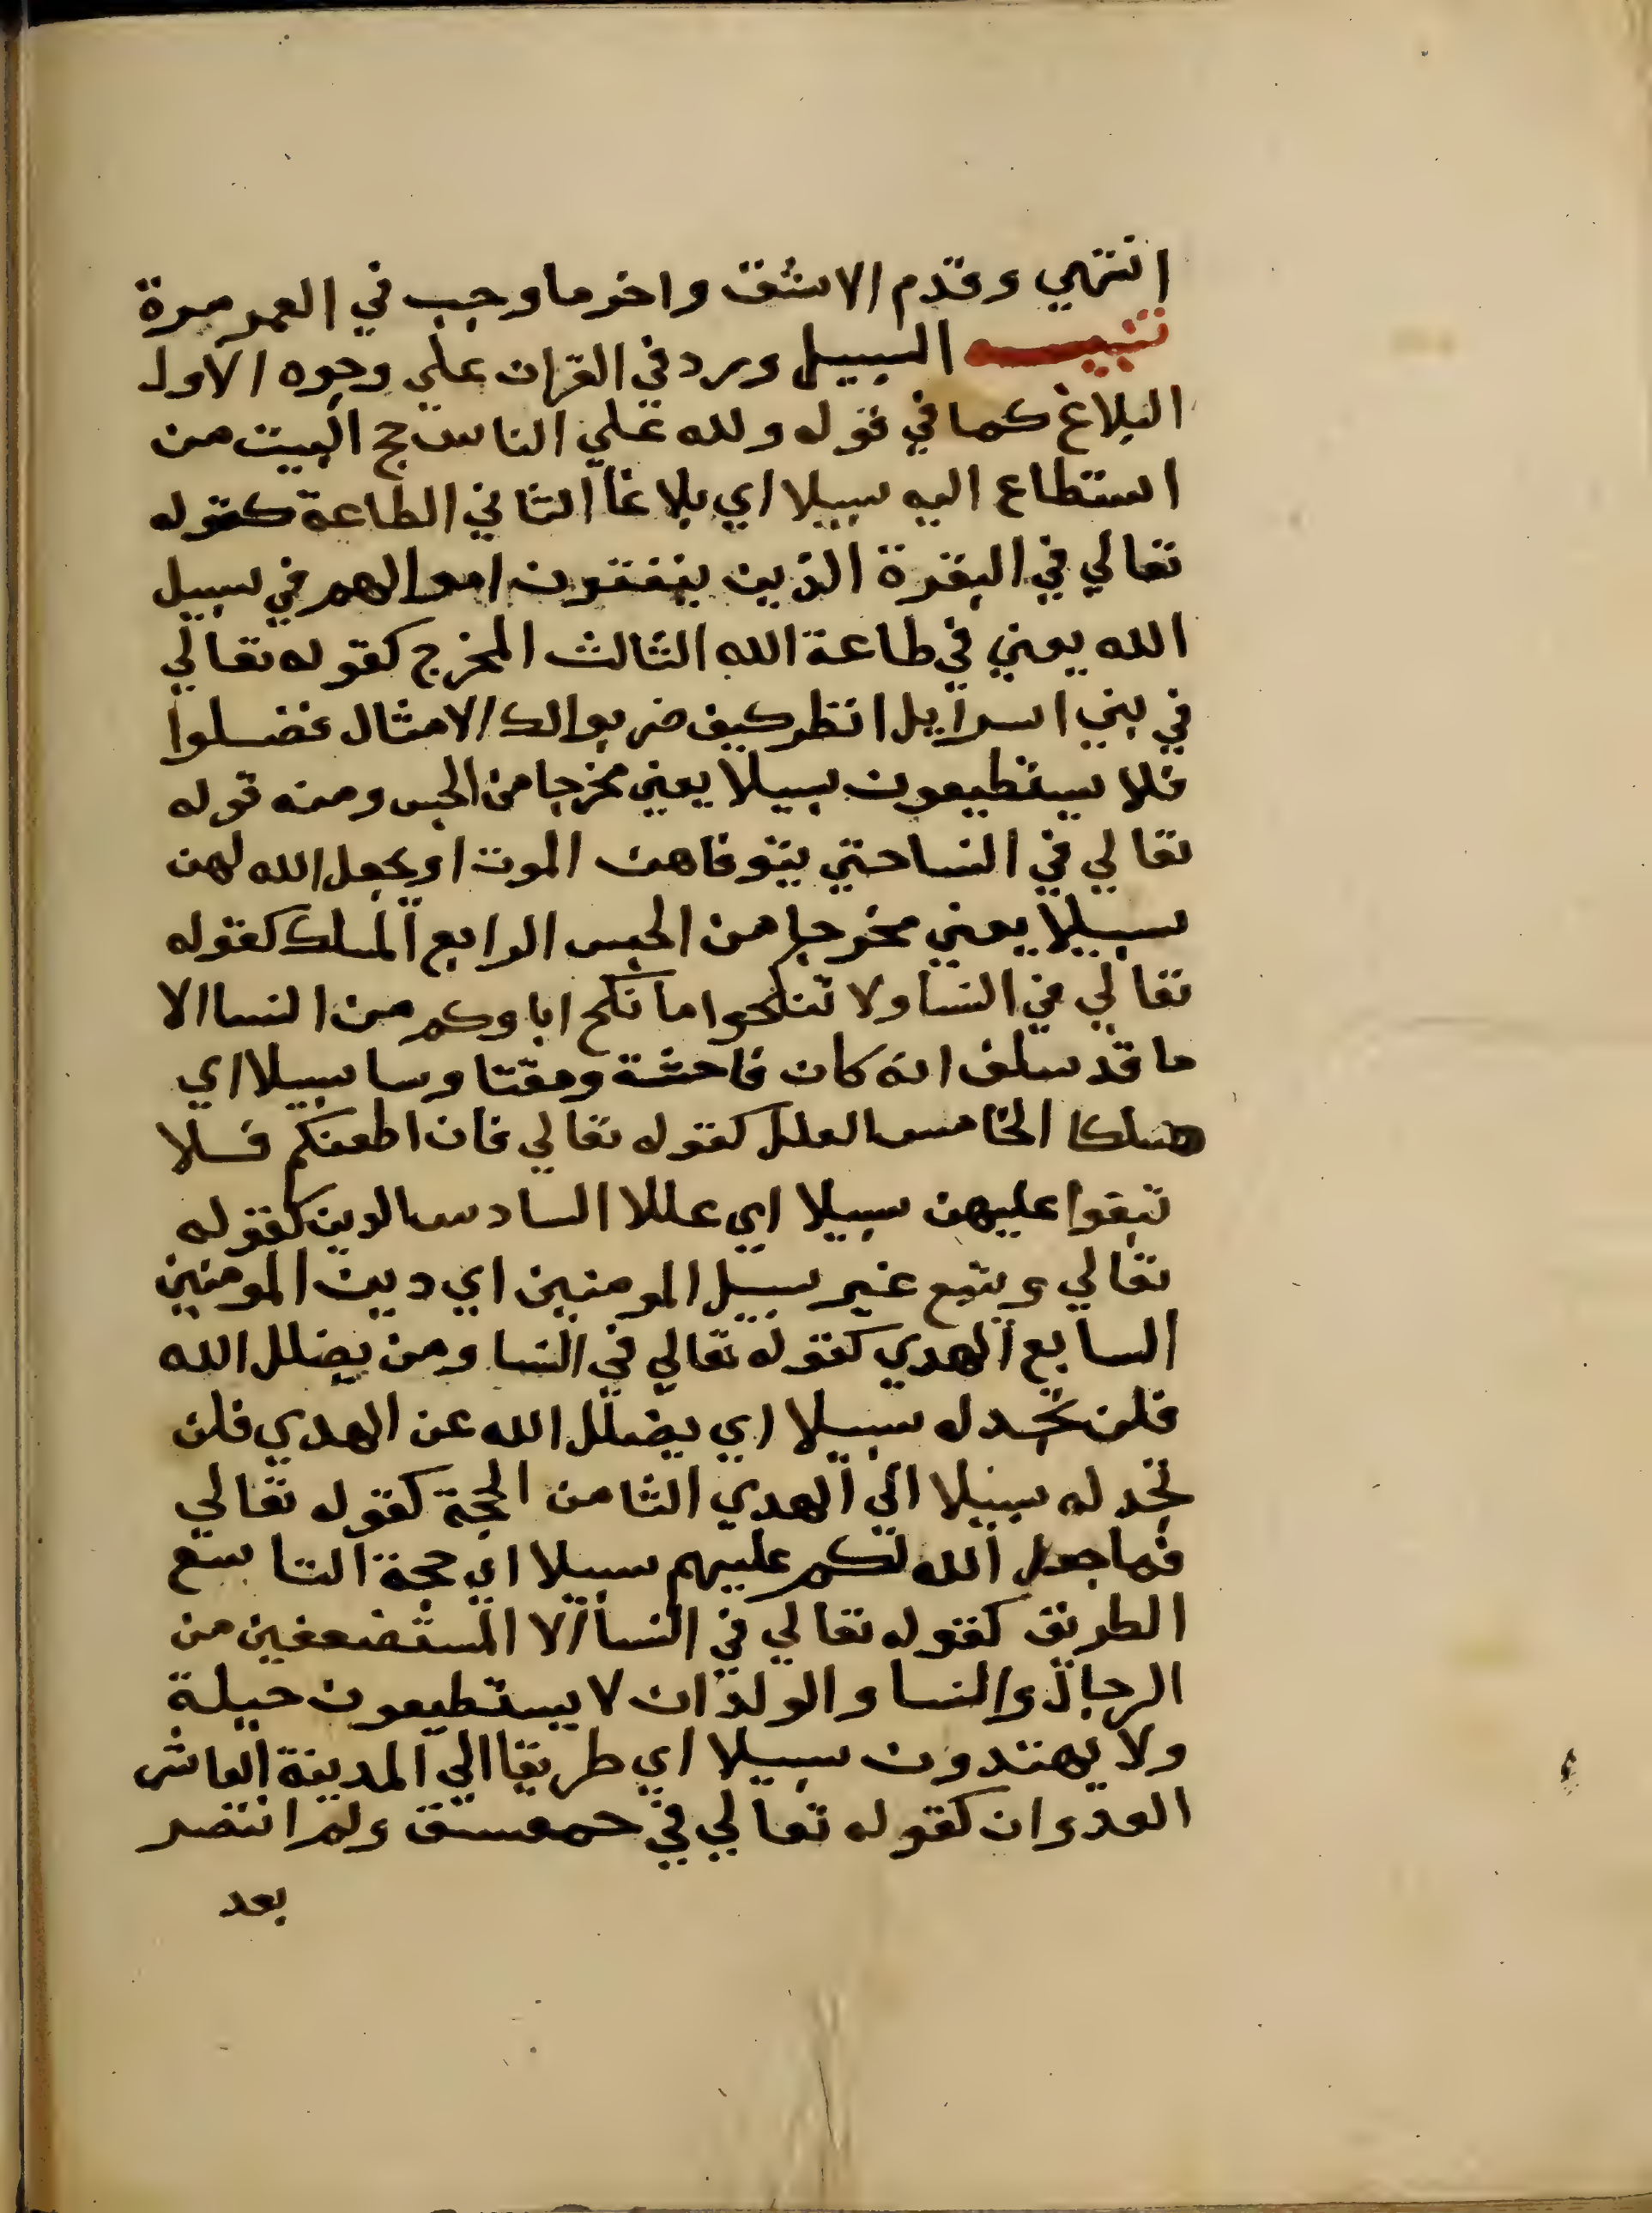 انتهي وقدم الاشق واخر ما وجب في العمر مرة
تنبيه السبيل ورد في القران علي وجوه الاول
البلاغ كما في قوله ولله علي الناس حج البيت من
استطاع اليه سبيلا اي بلاغا الثاني الطاعة كقوله
تعالي في البقرة الذين ينفقون اموالهم في سبيل
الله يعني في طاعة الله الثالث المخرج كقوله تعالي
في بني اسرايل انظر كيف ضربوا لك الامثال فضلوا
فلا يستطيعون سبيلا يعني مخرجا من الحبس ومنه قوله
تعالي في النسا حتي يتوفاهن الموت او يجعل الله لهن
سبيلا يعني مخرجا من الحبس الرابع المسلك كقوله
تعالي في النسا ولا تنكحوا ما نكح اباوكم من النسا الا
ما قد سلف انه كان فاحشة ومقتا وسا سبيلا اي
مسلكا الخامس العلل كقوله تعالي فان اطعنكم فلا
تبغوا عليهن سبيلا اي عللا السادس الدين كقوله
تعالي ويتبع غير سبيل المومنين اي دين المومنين
السابع الهدي كقوله تعالي في النسا ومن يضلل الله
فلن تجد له سبيلا اي يضلل الله عن الهدي فلن
تجد له سبيلا الي الهدي الثامن الحجة كقوله تعالي
فما جعل الله لكم عليهم سبيلا اي حجة التاسع
الطريق كقوله تعالي في النسا الا المستضعفين من
الرجال والنسا والولدان لا يستطيعون حيلة
ولا يهتدون سبيلا اي طريقا الي المدينة العاشر
العدوان كقوله تعالي في حمعسق ولمن انتصر
بعد